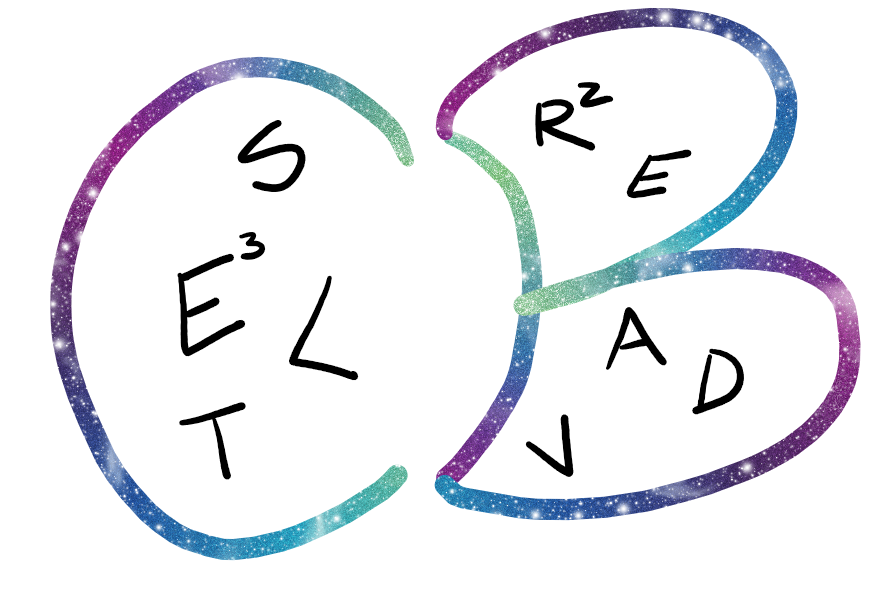 C B
S
E³ L
T
R²
E
A D
V